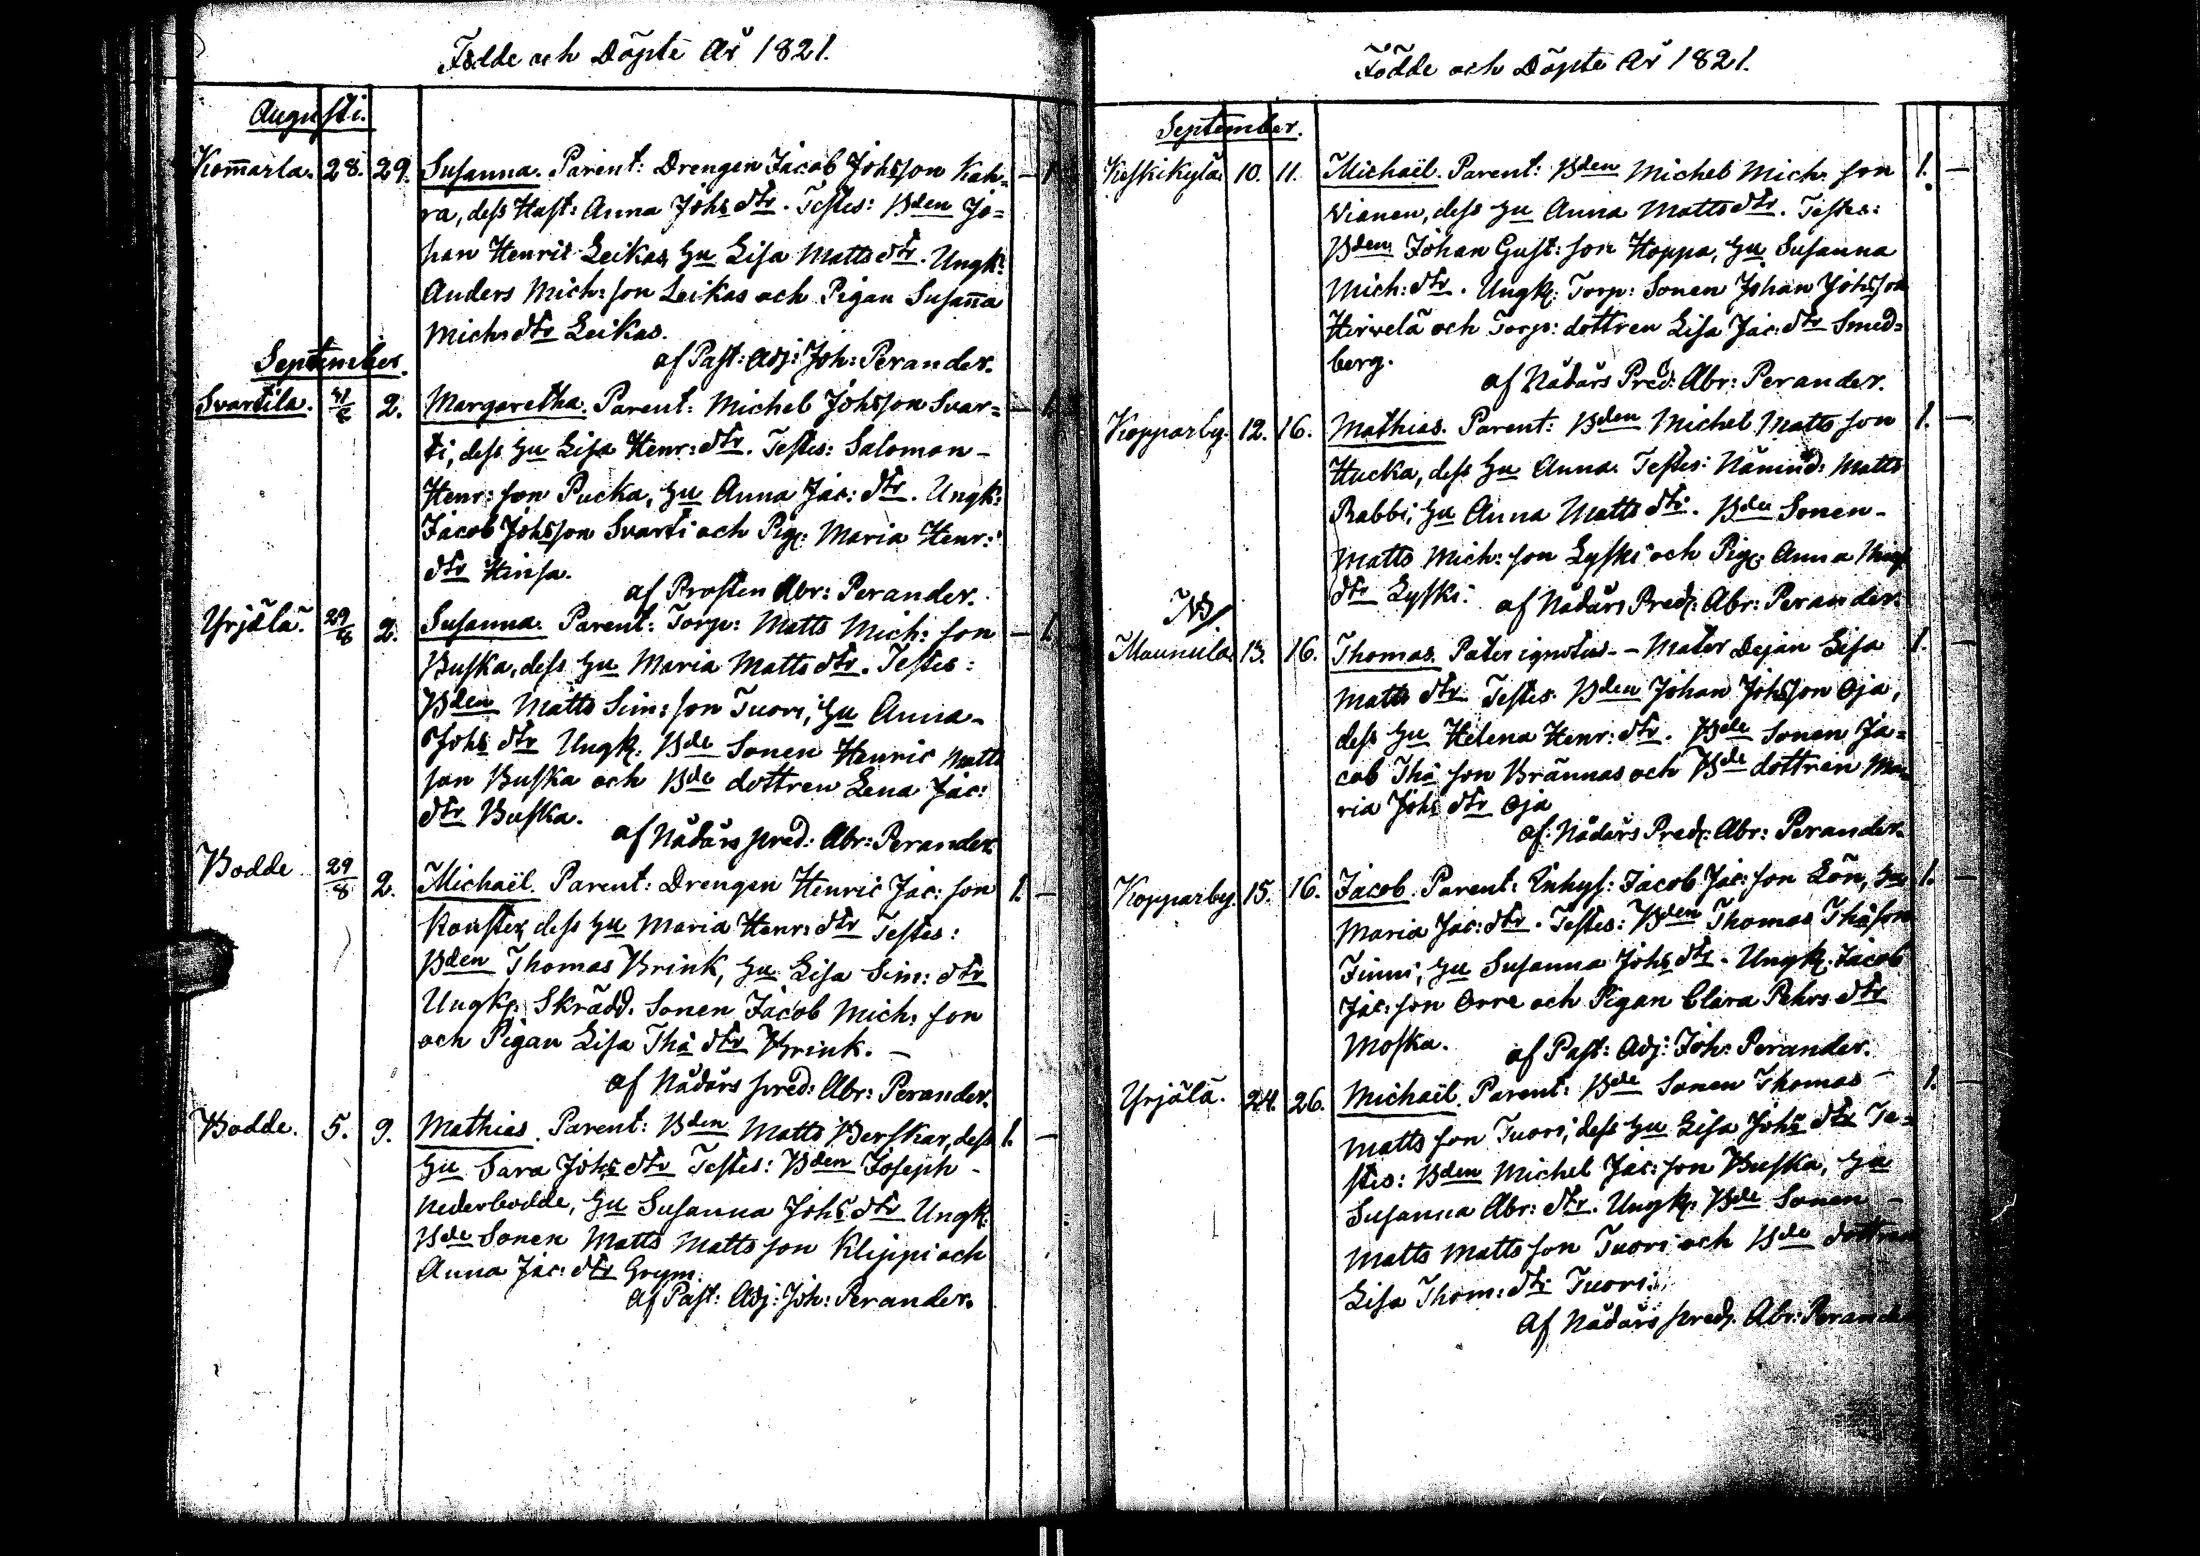 Födde och Döpte År 1821.
Augusti.
Kom̄arla. 28. 29. Susanna. Parent: Drengen Jacob Johsson Kah= — 1
ra, dess Hust: Anna Johs dtr. Testes: Bden Jo=
han Henric Leikas, Hu Lisa Matts dtr. Ungk:
Anders Mich: son Leikas och Pigan Susan̄a
Michs dtr Leikas.
af Past: Adj: Joh: Perander.
September.
Svartila. 2. Margaretha. Parent: Michel Johsson Svar= — 1.
ti, dess Hu Lisa Henr: dtr. Testes: Salomon –
Henr: son Pucka, Hu Anna Jac: dtr. Ungk:
Jacob Johsson Svarti och Pig: Maria Henr:
dtr Hinsa.
af Prosten Abr: Perander.
Yrjälä. 29/8 2. Susanna. Parent: Torp: Matts Mich: son — 1.
Buska, dess Hu Maria Matts dtr. Testes:
Bden Matts Sim: son Tuori, Hu Anna –
Johs dtr Ungk: Bde Sonen Henric Matts
son Buska och Bde dottren Lena Jac:
dtr Buska.
af Nådårs pred: Abr: Perander.
Bodde 29/8 2. Michaël. Parent: Drengen Henric Jac: son 1. —
dess Hu Maria Henr: dtr Testes:
Bden Thomas Brink, Hu Lisa Sim: dtr
Ungk: Skrädd. Sonen Jacob Mich: son
och Pigan Lisa Tha dtr Brink. –
af Nådårs pred: Abr: Perander.
Bodde. 5. 9. Mathias. Parent: Bden Matts Berskar, dess 1. —
Hu Sara Johs dtr Testes: Bden Joseph –
Nederbodde, Hu Susanna Johs dtr Ungk:
Bde Sonen Matts Matts son Klippi och
Anna Jac: dtr Grym.
af Past: Adj: Joh: Perander.
Födde och Döpte År 1821.
September.
Keskikylä. 10. 11. Michaël. Parent: Bden Michel Mich: son 1. —
Vianen, dess Hu Anna Matts dtr. Testes:
Bden Johan Gust: son Hoppa, Hu Susanna
Mich: dtr. Ungk: Torp: Sonen Johan Johsson
Hirvelä och Torp: dottren Lisa Jac: dtr Smed=
berg.
af Nådårs Pred: Abr: Perander.
Kopparby. 12. 16. Mathias. Parent: Bden Michel Matts son 1. —
Hucka, dess Hu Anna. Testes: Nämnd: Matts
Rabbi, Hu Anna Matts dtr. Bde Sonen –
Matts Mich: son Lyski och Pig: Anna
dtr Lyski. af Nådårs Pred: Abr: Perander.
NB
Maunula. 13. 16. Thomas. Pater ignotus – – Mater Dejan Lisa 1. —
Matts dtr Testes. Bden Johan Johsson Oja,
dess Hu Helena Henr: dtr. Bde Sonen Ja=
cob Tha son Brännas och Bde dottren Ma=
ria Johs dtr Oja
af: Nådårs Pred: Abr: Perander.
Kopparby. 15. 16. Jacob. Parent: Inhys: Jacob Jac: son Lön, Hu 1. —
Maria Jac: dtr. Testes: Bden Thomas Tha son
Finni, Hu Susanna Johs dtr. Ungk: Jacob
Jac: son Orre och Pigan Clara Pehrs dtr
Moska. af Past: Adj: Joh: Perander.
Yrjälä. 24. 26. Michaël. Parent: Bde Sonen Thomas – 1. —
Matts son Tuori, dess Hu Lisa Johs dtr Te=
stes: Bden Michel Jac: son Buska, Hu
Susanna Abr: dtr. Ungk: Bde Sonen –
Matts Matts son Tuori och Bde dottren
Lisa Thom: dtr Tuori.
af Nådårs pred: Abr: Perander